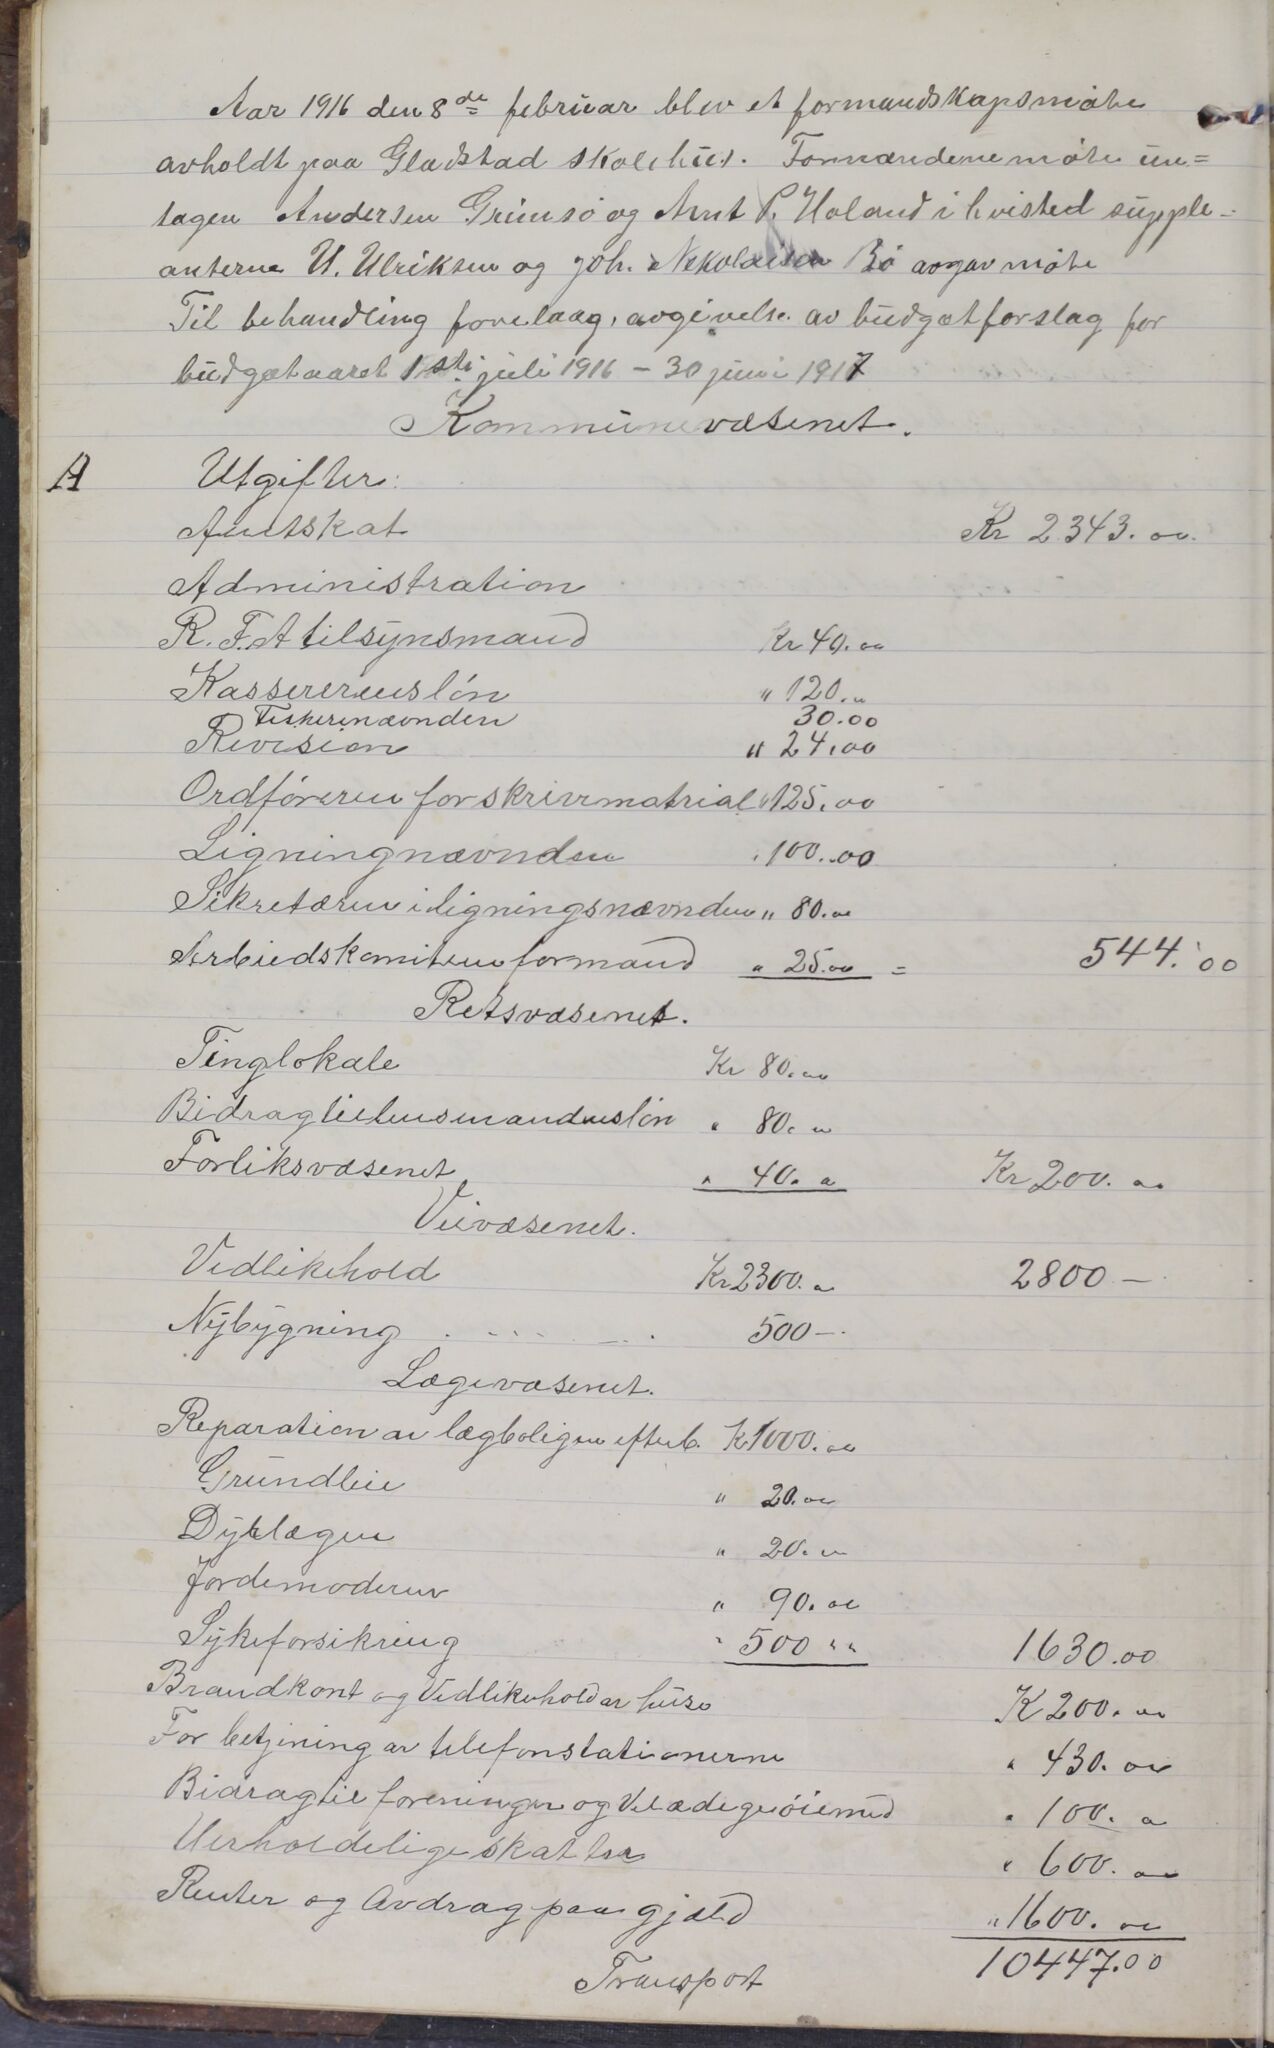 Aar 1916 den 8de februar blev et formandskapsmøte
avholdt paa Gladstad skolehus. Formændene møtte un=
tagen Andersen Grimsø og Arnt P. Holand i hvisted supple=
anterne U. Ulriksen og Joh. Nekolaisen Bø avgav møte
Til behandling forelaag, avgivelse av budgætforslag for
budgætaaret 1ste juli 1916 – 30 juni 1917
Kommunevæsenet.
A Utgifter:
Amtskat Kr 2343.00
Administration
R. F. A tilsynsmand Kr 40.00
Kassererenslön " 120.00
Fiskerinævnden 30.00
Revision " 24.00
Ordføreren for skrivrmatrial " 125.00
Ligningnævnden " 100.00
Sekretæren i ligningsnævnden " 80.00
Arbeidskomiteens formand " 25.00 = 544.00
Retsvæsenet.
Tinglokale Kr 80.00
Bidrag til lensmandenslön " 80.00
Forliksvæsenet " 40.00 Kr 200.00
Veivæsenet.
Vedlikehold Kr 2300.00 2800 –
Nybygning 500 –
Lægevæsenet.
Reparation av lægboligen efterb. K 1000.00
Grundleie " 20.00
Dyrlægen " 20.00
Jordemoderen " 90.00
Sykeforsikring " 500 " " 1630.00
Brandkont og Vedlikehold av huse K 200.00
For betjening av telefonstationerne " 430.00
Bidrag til foreninger og Velædige øiemed " 100.00
Uerholdelige skatter " 600.00
Renter og Avdrag paa gjæld " 1600.00
Transport 10447.00